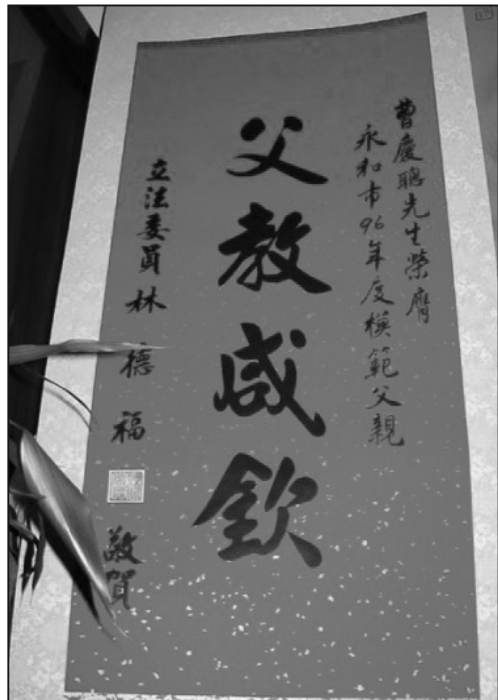 曹慶聰先生榮膺
永和市96年度模範父親
父教咸欽
立法委員林德福敬賀